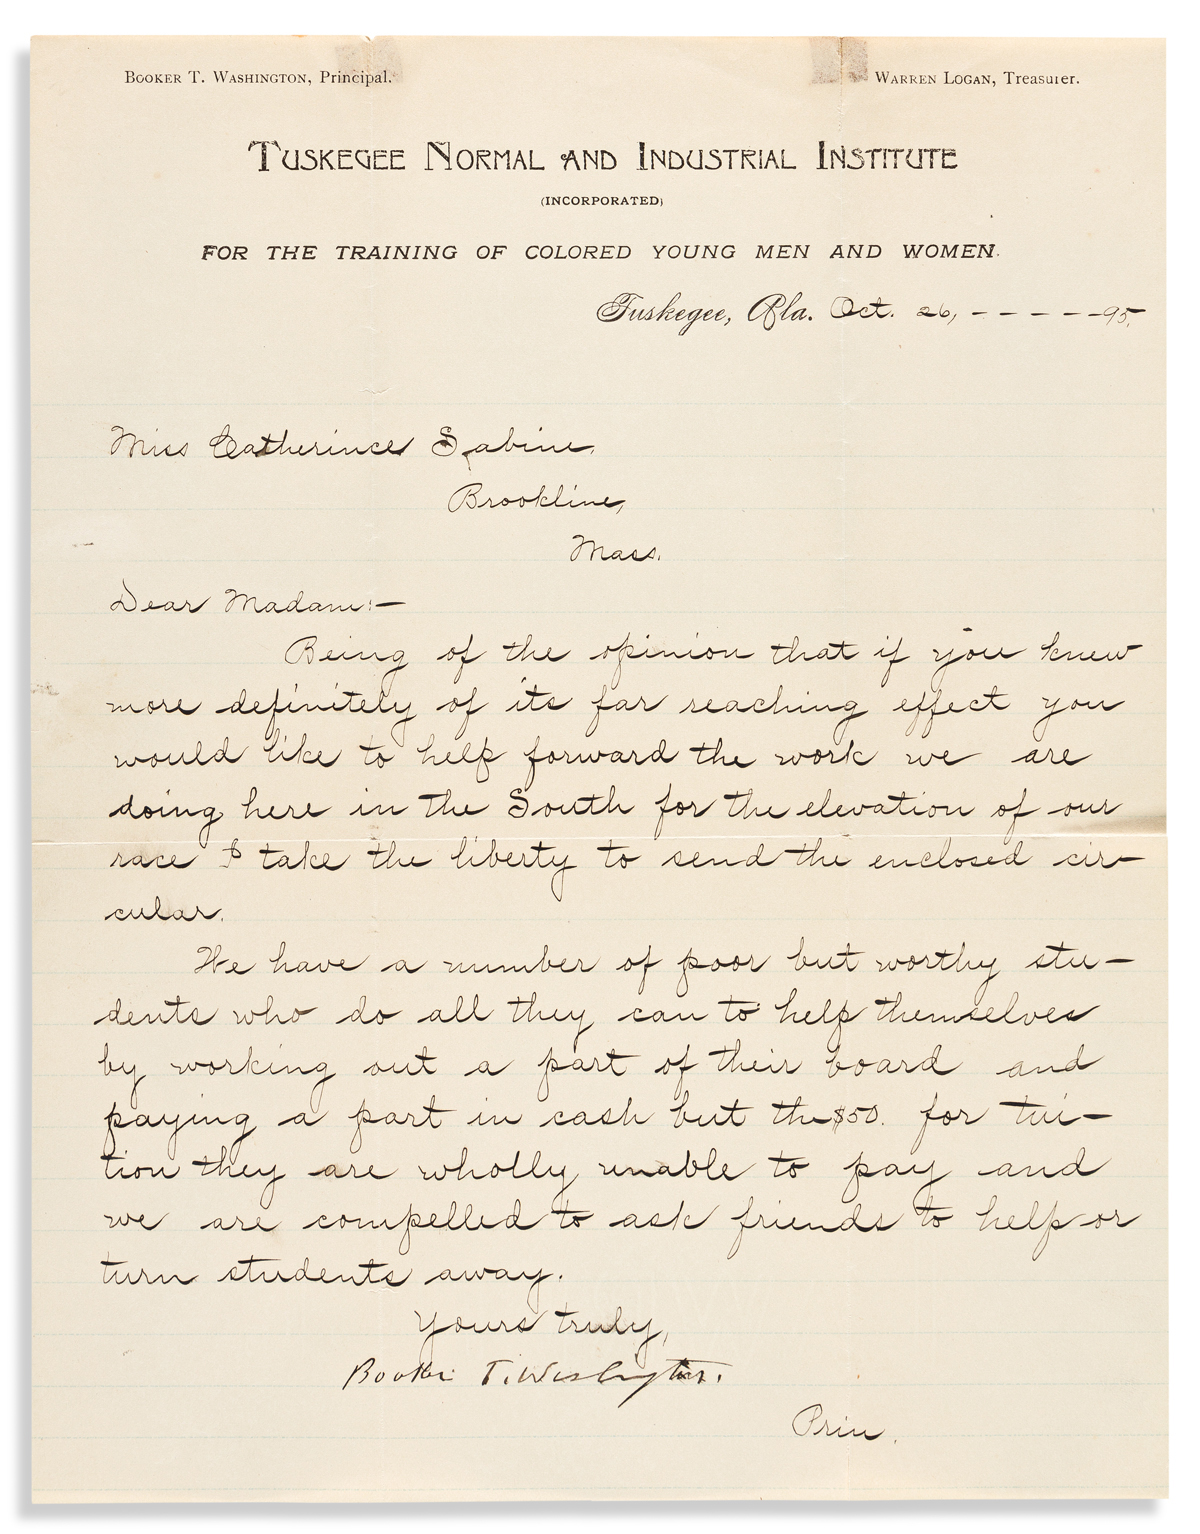 BOOKER T. WASHINGTON, Principal.
WARREN LOGAN, Treasurer.
TUSKEGEE NORMAL AND INDUSTRIAL INSTITUTE
(INCORPORATED)
FOR THE TRAINING OF COLORED YOUNG MEN AND WOMEN.
Tuskegee, Ala. Oct. 26, - - - - - 95.
Miss Catherince Sabine,
Brookline,
Mass.
Dear Madam:—
Being of the opinion that if you knew
more definitely of its far reaching effect you
would like to help forward the work we are
doing here in the South for the elevation of our
race I take the liberty to send the enclosed cir-
cular.
We have a number of poor but worthy stu-
dents who do all they can to help themselves
by working out a part of their board and
paying a part in cash but the $50. for tui-
tion they are wholly unable to pay and
we are compelled to ask friends to help or
turn students away.
Yours truly,
Booker T. Washington.
Prin.